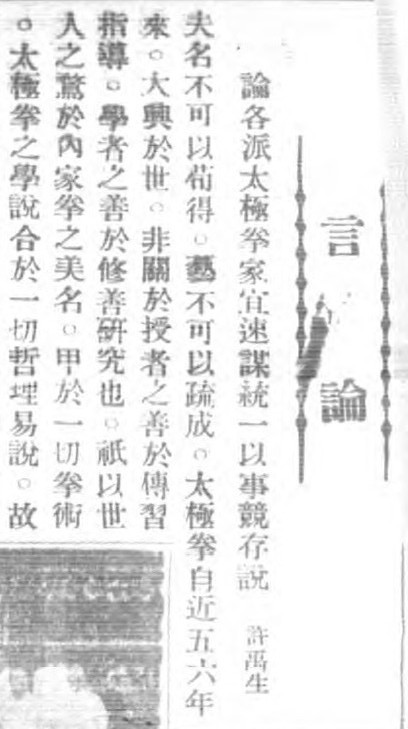 言論
論各派太極拳家宜速謀統一以事競存說　許禹生
夫名不可以茍得。藝不可以疏成。太極拳自近五六年
來。大興於世。非關於授者之善於傳習
指導。學者之善於修善研究也。祇以世
人之驚於內家拳之美名。甲於一切拳術
。太極拳之學說合於一切哲理易說。故